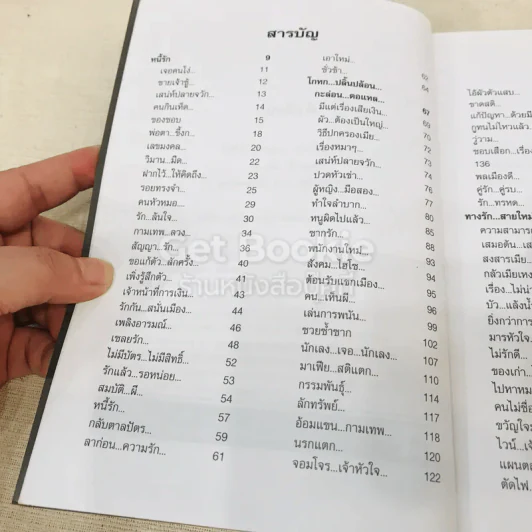 สารบัญ
หนี้รัก 9
เจอคนโง่... 11
ชายเจ้าชู้... 12
เสน่ห์ปลายจวัก... 13
คนกินเหิด... 14
ของชอบ 15
พ่อตา...ขี้งก... 18
เลขมงคล... 20
วิมาน...มืด... 22
ฝากไว้...ให้คิดถึง... 23
รอยทรงจำ... 25
คนหัวหมอ... 29
รัก...ล้นใจ... 30
กามเทพ...ลวง... 34
สัญญา...รัก... 36
ขอแก้ตัว...สักครั้ง... 40
เพิ่งรู้สึกตัว... 41
เจ้าหน้าที่การเงิน... 43
รักกัน...สนั่นเมือง... 44
เพลิงอารมณ์... 46
เชลยรัก... 48
ไม่มีบัตร...ไม่มีสิทธิ์... 52
รักแล้ว...รอหน่อย... 53
สมบัติ...ผี... 54
หนี้รัก...
กลับตาลปัตร... 57
ลาก่อน...ความรัก... 59
61
เอาใหม่... 62
ชั่วช้า... 64
โกหก...ปลิ้นปล้อน...
กะล่อน...ตอแหล... 67
มีแต่เรื่องเสียเงิน 69
ผัว...ต้องเป็นใหญ่ 70
วิธีปกครองเมีย... 72
เรื่องหมาๆ... 73
เสน่ห์ปลายจวัก... 74
ปวดหัวเช่า... 76
ผู้หญิง...มือสอง... 77
ทำใจลำบาก... 80
หนูผิดไปแล้ว... 85
ซากรัก... 88
พนักงานใหม่... 93
สังคม...ไฮโซ... 94
ต้อนรับแขกเมือง... 95
คน...เห็นผี... 96
เล่นการพนัน... 99
ชวยซ้ำซาก 102
นักเลง...เจอ...นักเลง... 107
มาเฟีย...สติแตก... 110
กรรมพันธุ์... 114
ลักทรัพย์... 117
อ้อมแขน...กามเทพ... 118
นรกแตก... 120
จอมโจร...เจ้าหัวใจ... 122
ไอ้ผัวตัวแสบ...
ขาดสติ...
แก้ปัญหา...ด้วยมี
กูทนไม่ไหวแล้ว
วู้วาม...
ชอบเสือก...เรื่อง
136
พลเมืองดี...
คู่รัก...คู่รบ...
รัก...ทรหด...
ทางรัก...สายใหม
ความสามารถ
เสมอต้น...เสมอ
สงสารเมีย...
กลัวเมียเหง
เรื่อง...ไม่น่า
บัว...แล้งน้ำ
ยิ่งกว่าการ
มารหัวใจ
ไม่รักดี...
ของเก่า...
ไปหาหม
คนไม่ซื่อ
ขวัญใจม
ไวน์...เจ้า
แผนตล
ตัดไฟ...
Get Bookie
ร้านหนังสือ